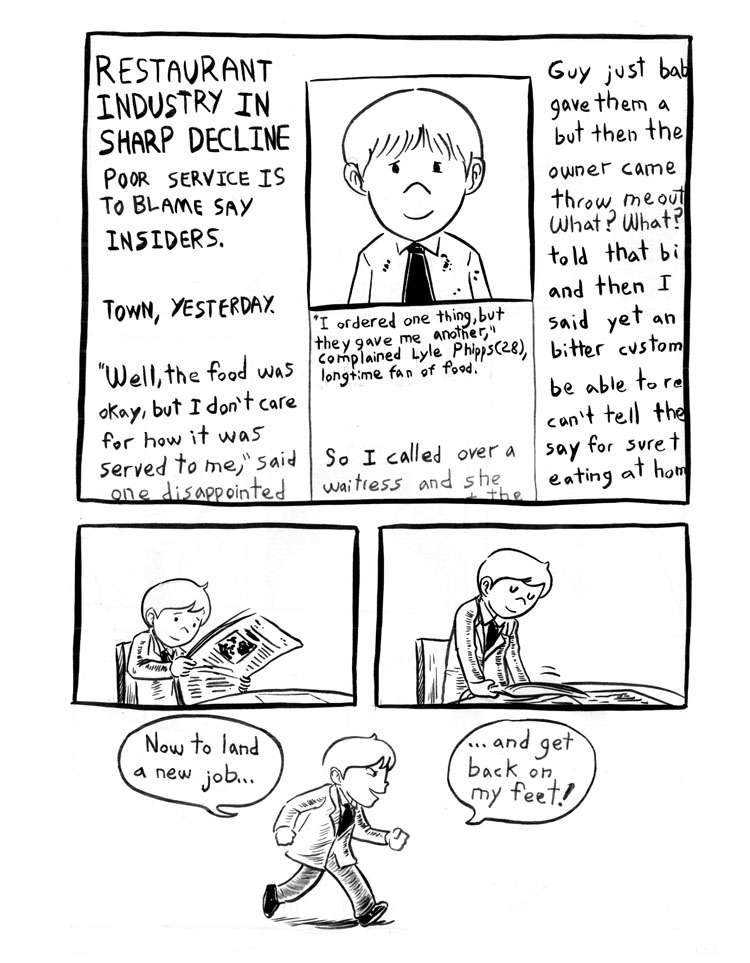 RESTAURANT
INDUSTRY IN
SHARP DECLINE
POOR SERVICE IS
TO BLAME SAY
INSIDERS.
TOWN, YESTERDAY.
"Well, the food was
okay, but I don't care
for how it was
served to me," said
one disappointed
"I ordered one thing, but
they gave me another,"
complained Lyle Phipps (28),
longtime fan of food.
So I called over a
waitress and she
the
Guy just bab
gave them a
but then the
owner came
throw me out
What? What?
told that bi
and then I
said yet an
bitter custom
be able to re
can't tell the
say for sure t
eating at hom
Now to land
a new job...
...and get
back on
my feet!